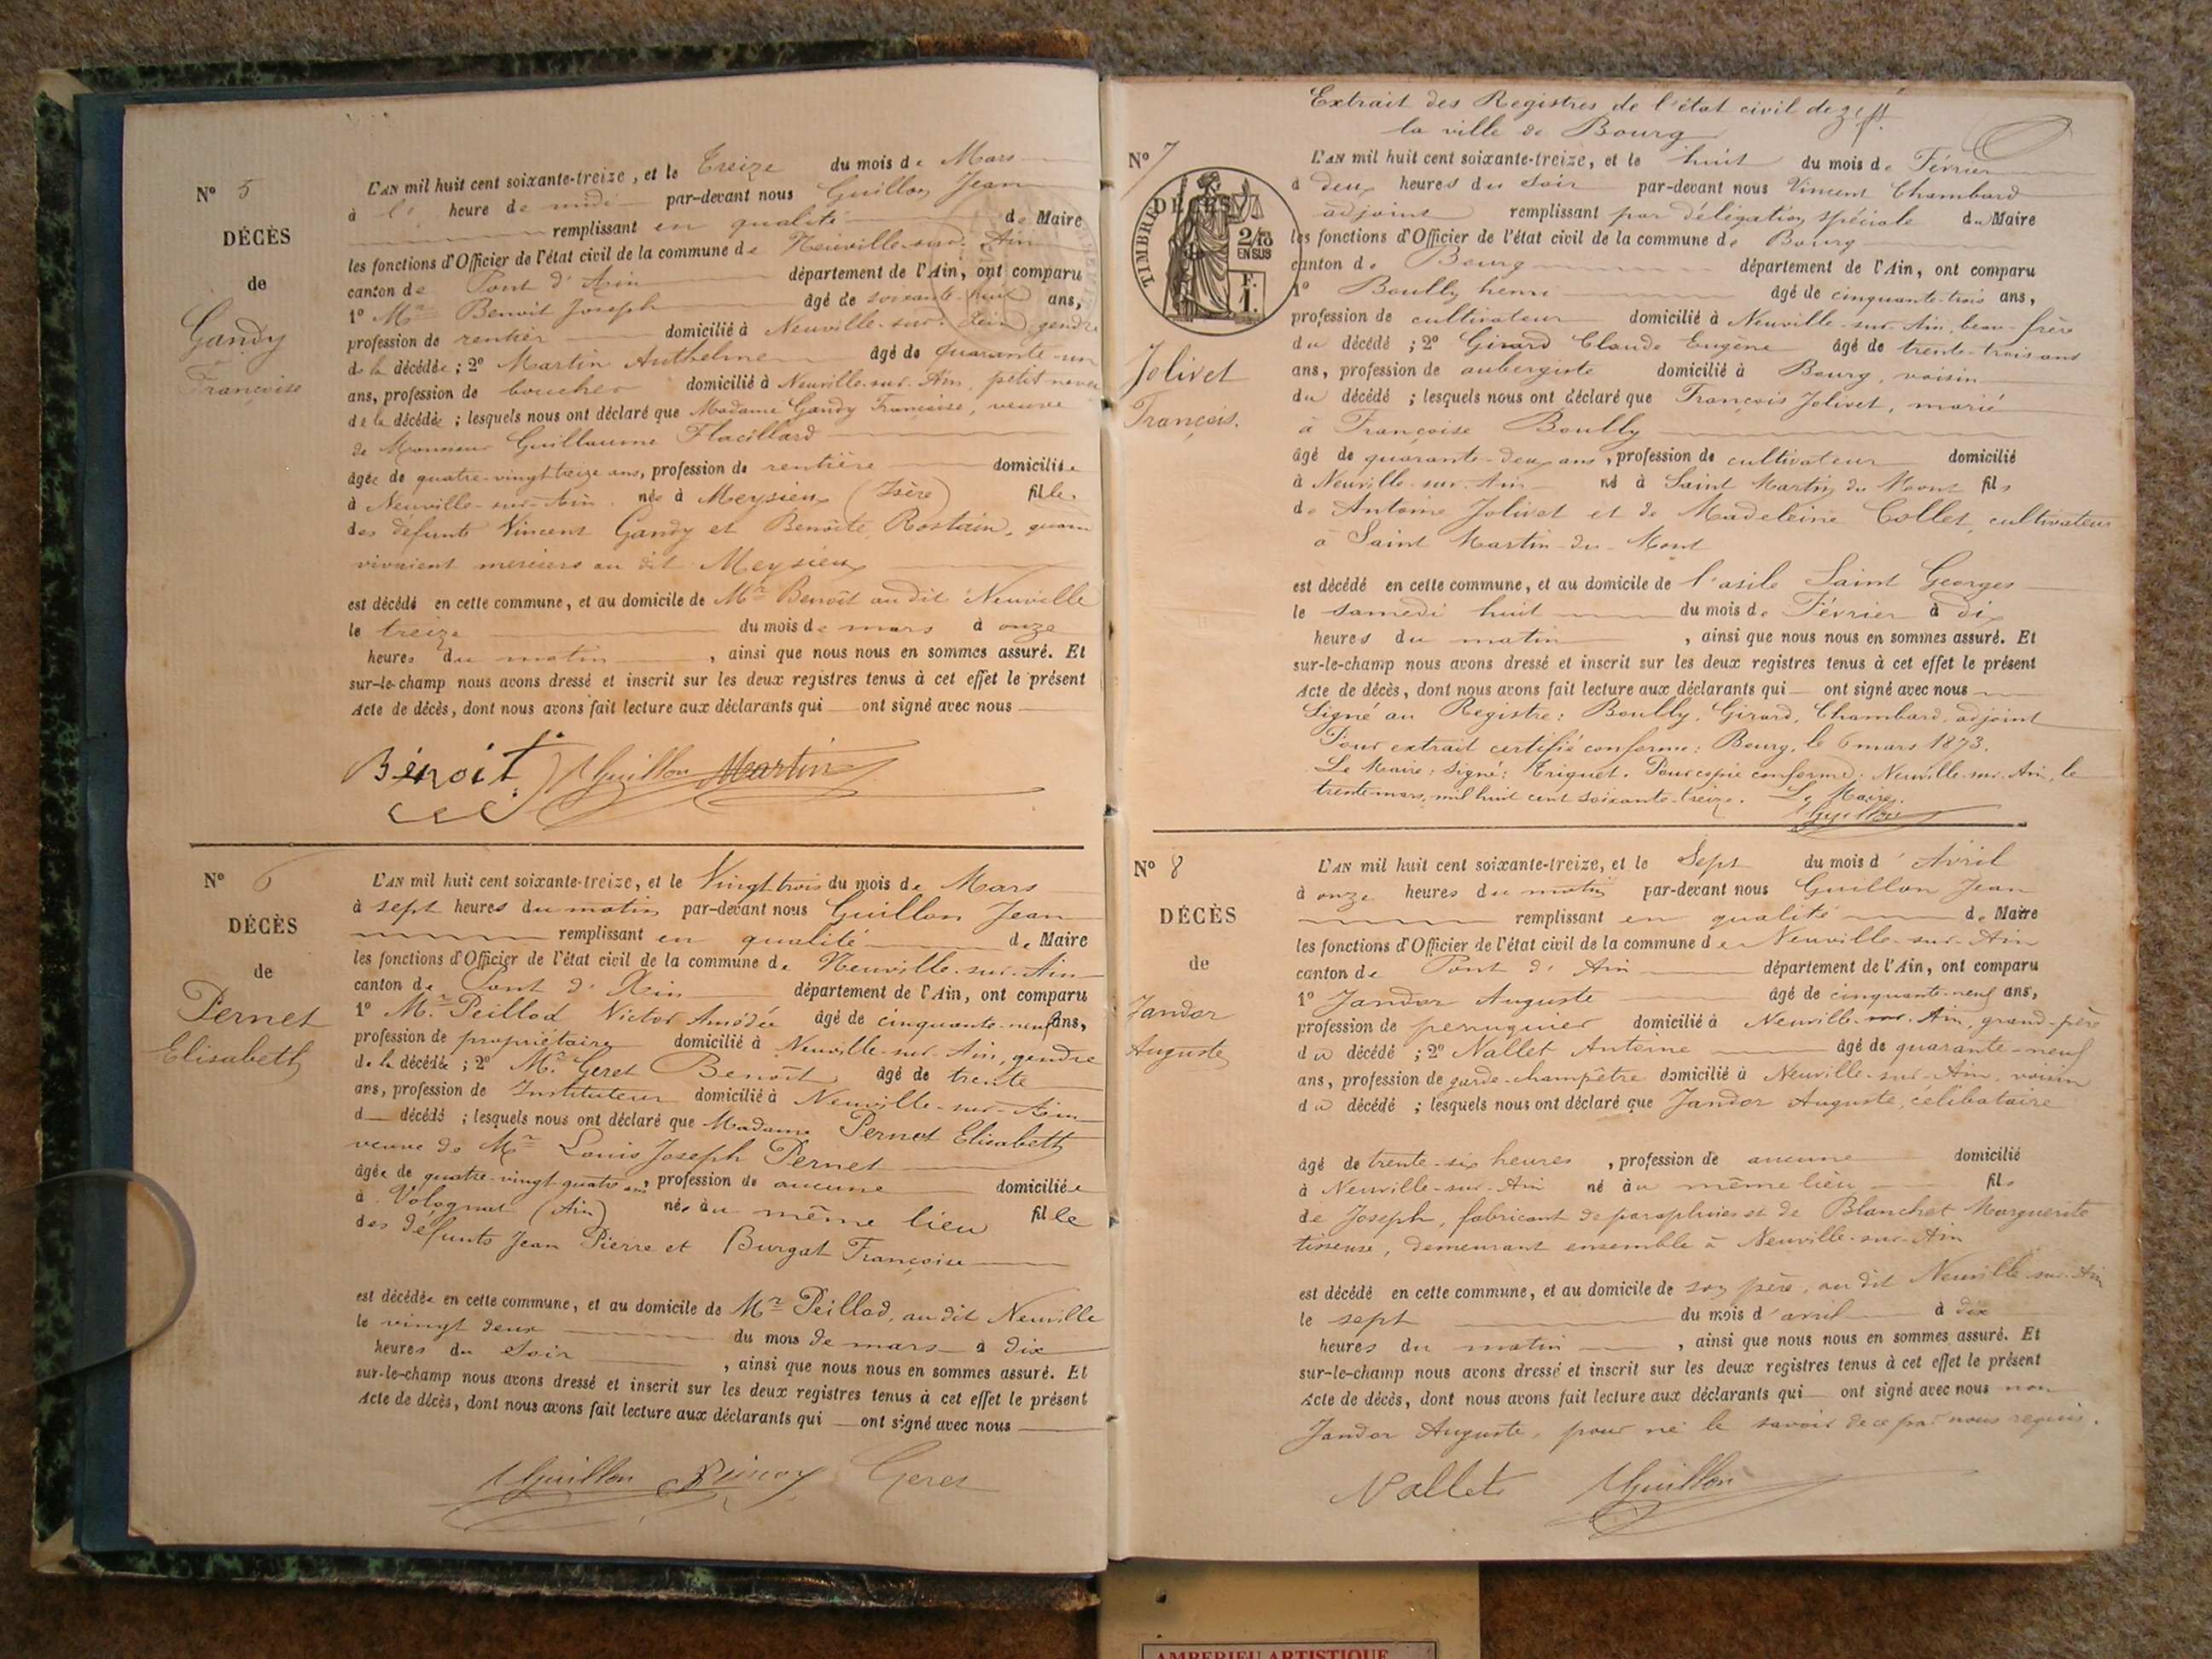 N° 5
DÉCÈS
de
Gandy
Françoise
L'AN mil huit cent soixante-treize, et le Treize du mois de Mars
à l' heure de midi par-devant nous Guillon Jean
remplissant en qualité de Maire
les fonctions d'Officier de l'état civil de la commune de Neuville-sur-Ain
canton de Pont d'Ain département de l'Ain, ont comparu
1° Mr Benoit Joseph âgé de soixante-huit ans,
profession de rentier domicilié à Neuville-sur-Ain gendre
de la décédée ; 2° Martin Anthelme âgé de quarante-un
ans, profession de boucher domicilié à Neuville-sur-Ain, petit-neveu
de la décédée ; lesquels nous ont déclaré que Madame Gandy Françoise, veuve
de Monsieur Guillaume Flacillard
âgée de quatre-vingt treize ans, profession de rentière domiciliée
à Neuville-sur-Ain née à Meysieux (Isère) fille
des défunts Vincent Gandy et Benoîte Rostain, quand
vivaient merciers au dit Meysieux
est décédé en cette commune, et au domicile de Mr Benoît au dit Neuville
le treize du mois de mars à onze
heures du matin, ainsi que nous nous en sommes assuré. Et
sur-le-champ nous avons dressé et inscrit sur les deux registres tenus à cet effet le présent
Acte de décès, dont nous avons fait lecture aux déclarants qui ont signé avec nous
Bénoit Guillon Martin
N° 6
DÉCÈS
de
Pernet
Elisabeth
L'AN mil huit cent soixante-treize, et le Vingt trois du mois de Mars
à sept heures du matin par-devant nous Guillon Jean
remplissant en qualité de Maire
les fonctions d'Officier de l'état civil de la commune de Neuville-sur-Ain
canton de Pont d'Ain département de l'Ain, ont comparu
1° Mr Peillod Victor Amédée âgé de cinquante-neuf ans,
profession de propriétaire domicilié à Neuville-sur-Ain, gendre
de la décédée ; 2° Mr Geret Benoît âgé de trente
ans, profession de Instituteur domicilié à Neuville-sur-Ain
d décédé ; lesquels nous ont déclaré que Madame Pernet Elisabeth
veuve de Mr Louis Joseph Pernet
âgée de quatre-vingt-quatre ans, profession de aucune domiciliée
à Volognat (Ain) née au même lieu fille
des défunts Jean Pierre et Burgat Françoise
est décédée en cette commune, et au domicile de Mr Peillod, au dit Neuville
le vingt deux du mois de mars à dix
heures du soir, ainsi que nous nous en sommes assuré. Et
sur-le-champ nous avons dressé et inscrit sur les deux registres tenus à cet effet le présent
Acte de décès, dont nous avons fait lecture aux déclarants qui ont signé avec nous
Guillon Geret
Extrait des Registres de l'état civil de
la ville de Bourg
N° 7
DÉCÈS
TIMBRE
2/10
EN SUS
F.
1.
Jolivet
François.
L'AN mil huit cent soixante-treize, et le huit du mois de Février
à deux heures du soir par-devant nous Vincent Chambard
adjoint remplissant par délégation spéciale du Maire
les fonctions d'Officier de l'état civil de la commune de Bourg
canton de Bourg département de l'Ain, ont comparu
1° Boully henri âgé de cinquante-trois ans,
profession de cultivateur domicilié à Neuville-sur-Ain, beau-frère
du décédé ; 2° Girard Claude Eugène âgé de trente-trois ans
ans, profession de aubergiste domicilié à Bourg, voisin
du décédé ; lesquels nous ont déclaré que François Jolivet, marié
à Françoise Boully
âgé de quarante-deux ans, profession de cultivateur domicilié
à Neuville-sur-Ain né à Saint Martin du Mont fils
de Antoine Jolivet et de Madeleine Collet, cultivateurs
à Saint Martin-du-Mont
est décédé en cette commune, et au domicile de l'asile Saint Georges
le samedi huit du mois de Février à dix
heures du matin, ainsi que nous nous en sommes assuré. Et
sur-le-champ nous avons dressé et inscrit sur les deux registres tenus à cet effet le présent
Acte de décès, dont nous avons fait lecture aux déclarants qui ont signé avec nous
Signé au Registre : Boully, Girard, Chambard, adjoint
Pour extrait certifié conforme : Bourg, le 6 mars 1873.
Le Maire, signé : Triquet. Pour copie conforme : Neuville-sur-Ain, le
trente mars, mil huit cent soixante-treize. Le Maire.
Guillon
N° 8
DÉCÈS
de
Jandor
Auguste
L'AN mil huit cent soixante-treize, et le Sept du mois d'Avril
à onze heures du matin par-devant nous Guillon Jean
remplissant en qualité de Maire
les fonctions d'Officier de l'état civil de la commune de Neuville-sur-Ain
canton de Pont d'Ain département de l'Ain, ont comparu
1° Jandor Auguste âgé de cinquante-neuf ans,
profession de perruquier domicilié à Neuville-sur-Ain, grand-père
du décédé ; 2° Nallet Antoine âgé de quarante-neuf
ans, profession de garde-champêtre domicilié à Neuville-sur-Ain, voisin
du décédé ; lesquels nous ont déclaré que Jandor Auguste, célibataire
âgé de trente-six heures, profession de aucune domicilié
à Neuville-sur-Ain né au même lieu fils
de Joseph, fabricant de parapluies et de Blanchet Marguerite
tisseuse, demeurant ensemble à Neuville-sur-Ain
est décédé en cette commune, et au domicile de son père, au dit Neuville-sur-Ain
le sept du mois d'avril à dix
heures du matin, ainsi que nous nous en sommes assuré. Et
sur-le-champ nous avons dressé et inscrit sur les deux registres tenus à cet effet le présent
Acte de décès, dont nous avons fait lecture aux déclarants qui ont signé avec nous non
Jandor Auguste, pour ne le savoir de ce par nous requis.
Nallet Guillon
AMBERIEU ARTISTIQUE